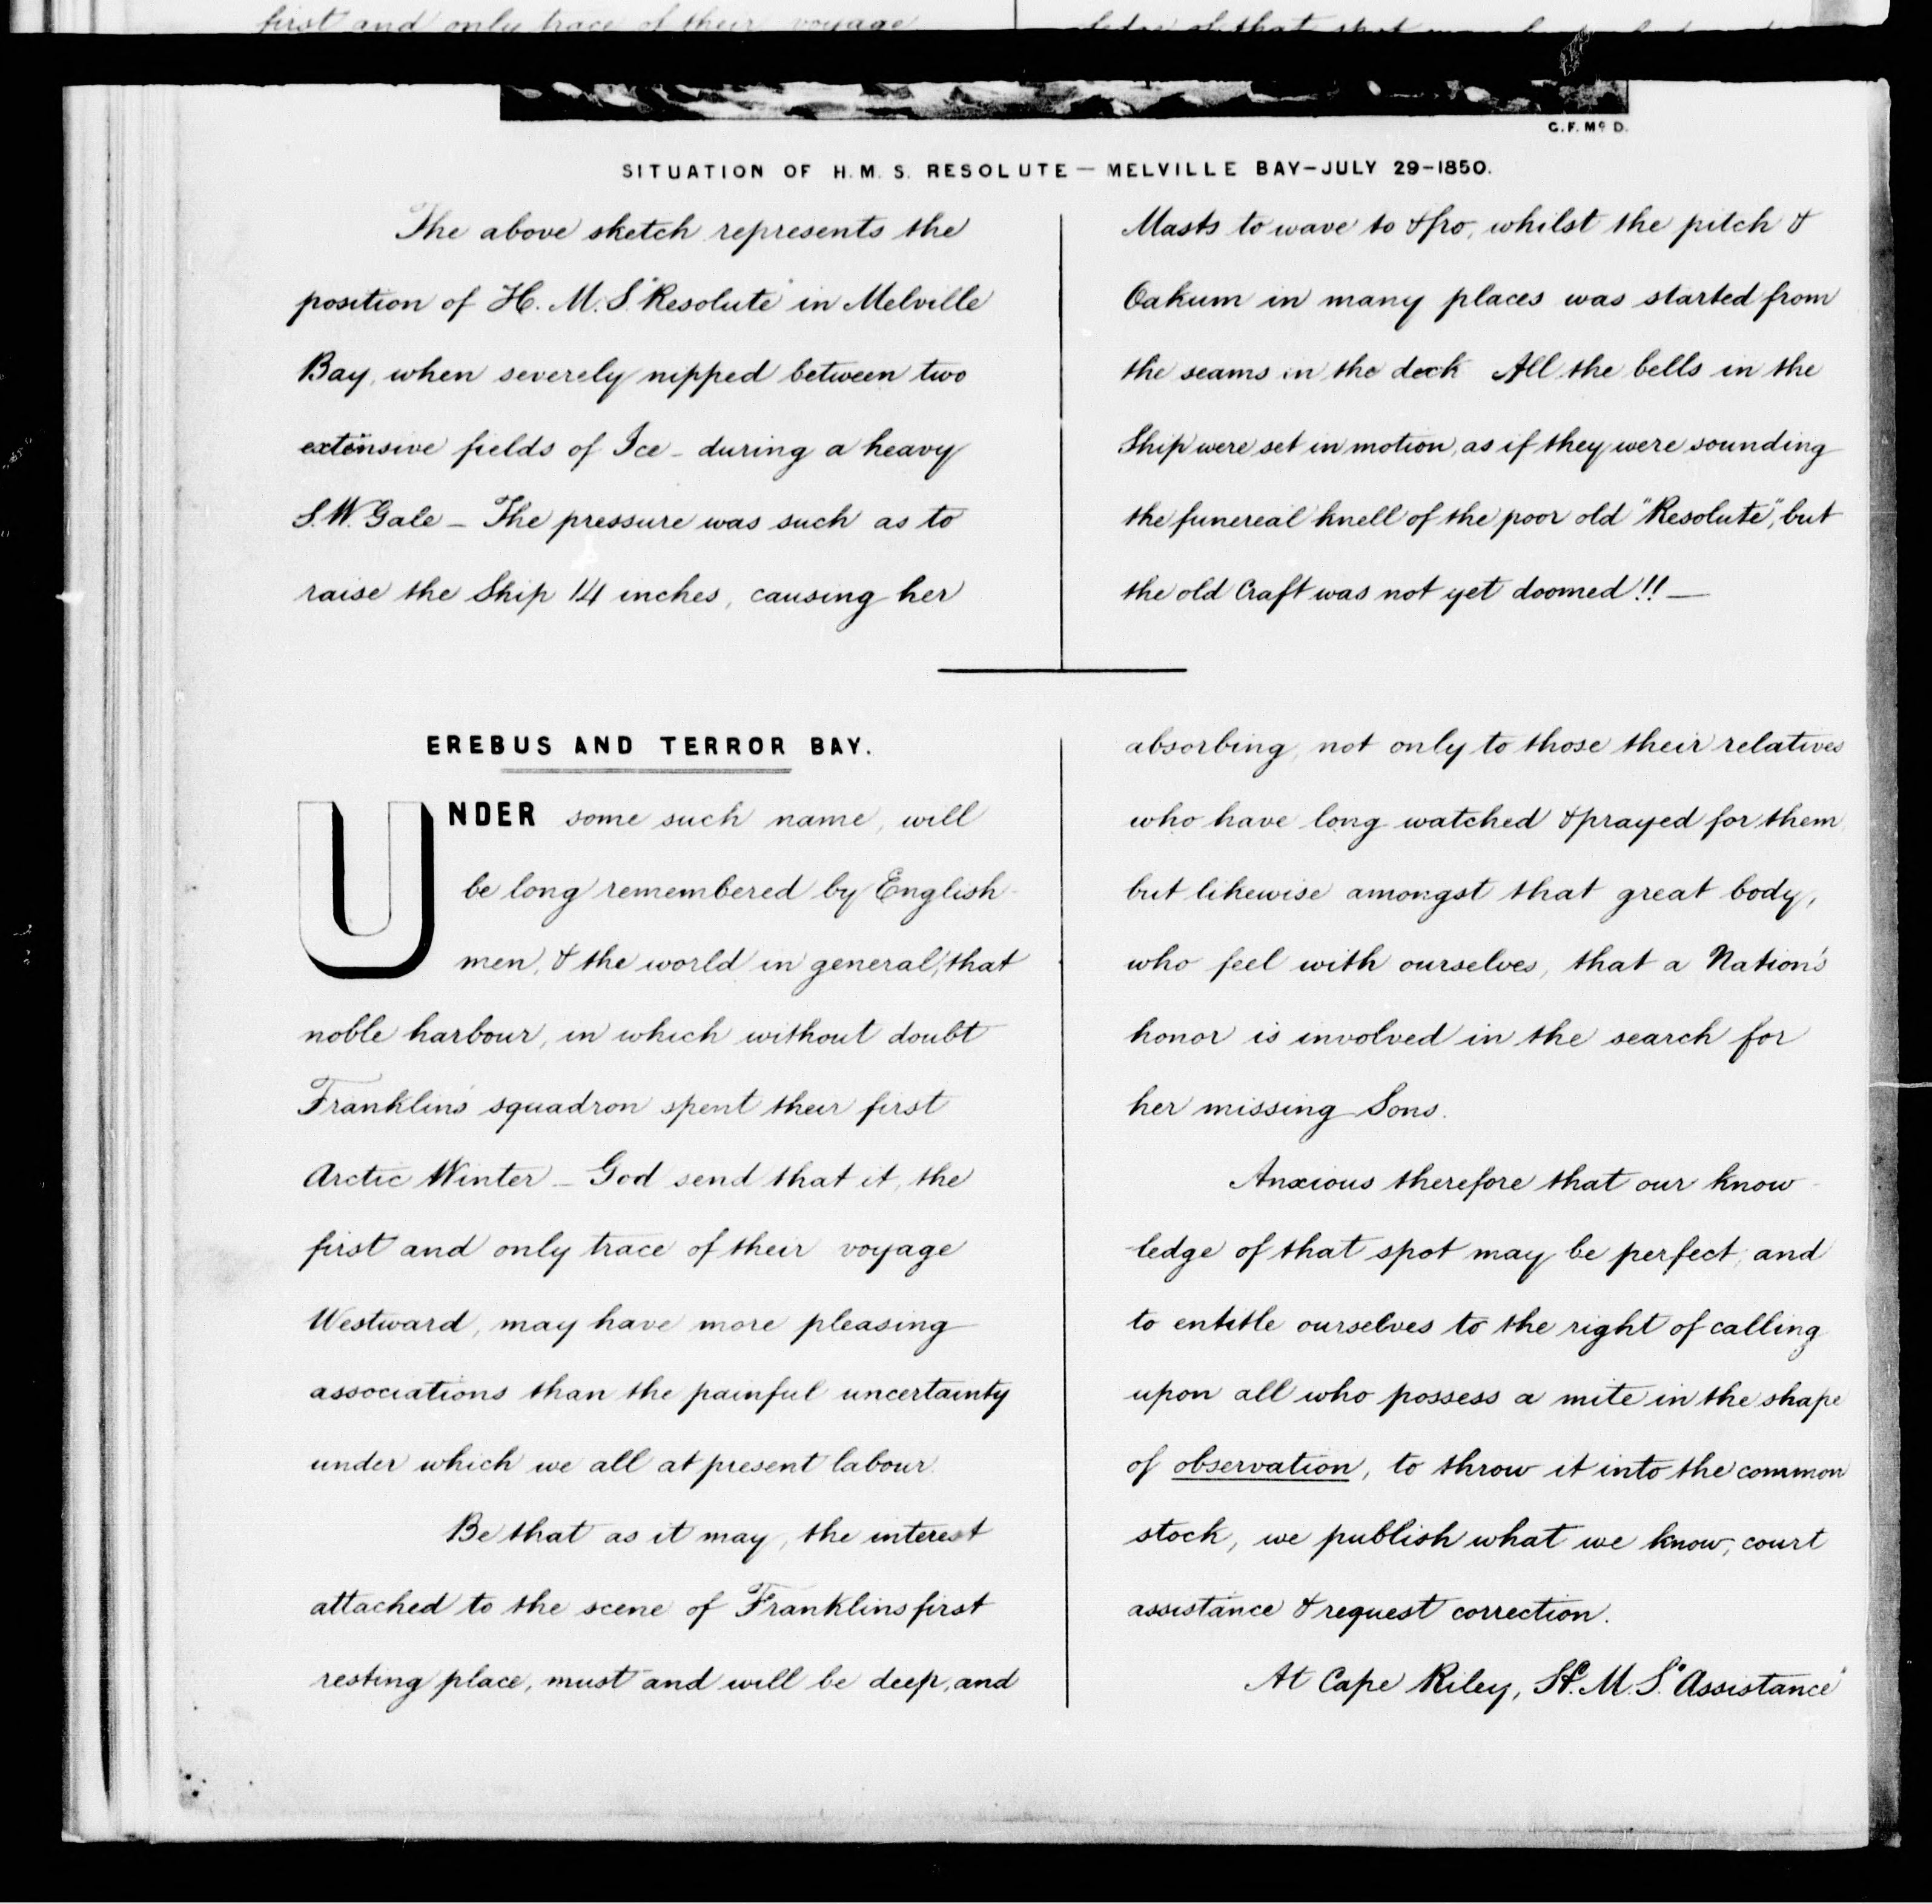 first and only trace of their voyage
ledge of that spot
C. F. Mc D.
SITUATION OF H. M. S. RESOLUTE — MELVILLE BAY — JULY 29 — 1850.
The above sketch represents the
position of H. M. S. "Resolute" in Melville
Bay, when severely nipped between two
extensive fields of Ice — during a heavy
S. W. Gale — The pressure was such as to
raise the Ship 14 inches, causing her
Masts to wave to & fro, whilst the pitch &
Oakum in many places was started from
the seams in the deck All the bells in the
Ship were set in motion, as if they were sounding
the funereal knell of the poor old "Resolute", but
the old Craft was not yet doomed!! —
EREBUS AND TERROR BAY.
UNDER some such name, will
be long remembered by English-
men, & the world in general, that
noble harbour, in which without doubt
Franklin's squadron spent their first
Arctic Winter — God send that it, the
first and only trace of their voyage
Westward, may have more pleasing
associations than the painful uncertainty
under which we all at present labour.
Be that as it may, the interest
attached to the scene of Franklins first
resting place, must and will be deep, and
absorbing, not only to those their relatives
who have long watched & prayed for them
but likewise amongst that great body,
who feel with ourselves, that a Nation's
honor is involved in the search for
her missing Sons.
Anxious therefore that our know-
ledge of that spot may be perfect, and
to entitle ourselves to the right of calling
upon all who possess a mite in the shape
of observation, to throw it into the common
stock, we publish what we know, court
assistance & request correction.
At Cape Riley, H. M. S. "Assistance"